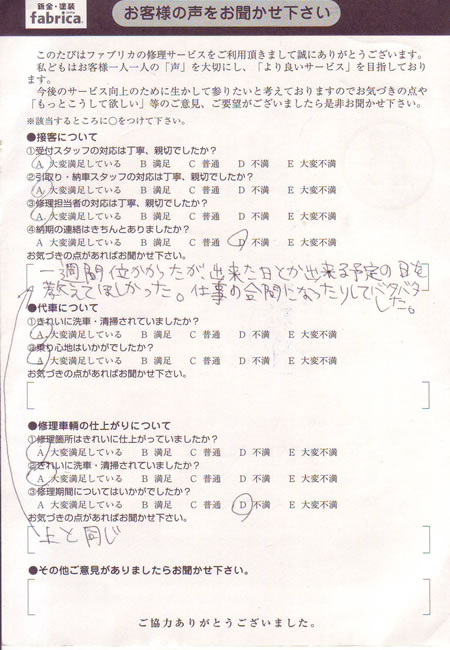 鈑金・塗装
fabrica.
お客様の声をお聞かせ下さい
このたびはファブリカの修理サービスをご利用頂きまして誠にありがとうございます。
私どもはお客様一人一人の「声」を大切にし、「より良いサービス」を目指しており
ます。
今後のサービス向上のために生かして参りたいと考えておりますのでお気づきの点や
「もっとこうして欲しい」等のご意見、ご要望がございましたら是非お聞かせ下さい。
※該当するところに○をつけて下さい。
●接客について
①受付スタッフの対応は丁寧、親切でしたか?
A 大変満足している B 満足 C 普通 D 不満 E 大変不満
②引取り・納車スタッフの対応は丁寧、親切でしたか?
A 大変満足している B 満足 C 普通 D 不満 E 大変不満
③修理担当者の対応は丁寧、親切でしたか?
A 大変満足している B 満足 C 普通 D 不満 E 大変不満
④納期の連絡はきちんとありましたか?
A 大変満足している B 満足 C 普通 D 不満 E 大変不満
お気づきの点があればお聞かせ下さい。
一週間位かかったが、出来た日とか出来る予定の日を
教えてほしかった。仕事の合間になったりしてバタバタ
した。
●代車について
①きれいに洗車・清掃されていましたか?
A 大変満足している B 満足 C 普通 D 不満 E 大変不満
②乗り心地はいかがでしたか?
A 大変満足している B 満足 C 普通 D 不満 E 大変不満
お気づきの点があればお聞かせ下さい。
●修理車輌の仕上がりについて
①修理箇所はきれいに仕上がっていましたか?
A 大変満足している B 満足 C 普通 D 不満 E 大変不満
②きれいに洗車・清掃されていましたか?
A 大変満足している B 満足 C 普通 D 不満 E 大変不満
③修理期間についてはいかがでしたか?
A 大変満足している B 満足 C 普通 D 不満 E 大変不満
お気づきの点があればお聞かせ下さい。
上と同じ
●その他ご意見がありましたらお聞かせ下さい。
ご協力ありがとうございました。